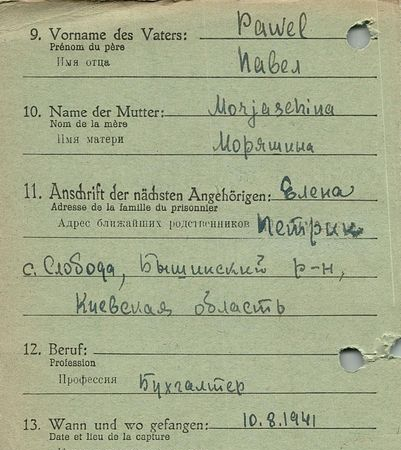 9. Vorname des Vaters: Pawel
Prénom du père
Имя отца Павел
10. Name der Mutter: Morjaschina
Nom de la mère
Имя матери Моряшина
11. Anschrift der nächsten Angehörigen: Елена
Adresse de la famille du prisonnier
Адрес ближайших родственников Петрик
с. Слобода, Бышинский р-н,
Киевская область
12. Beruf:
Profession
Профессия Бухгалтер
13. Wann und wo gefangen: 10.8.1941
Date et lieu de la capture